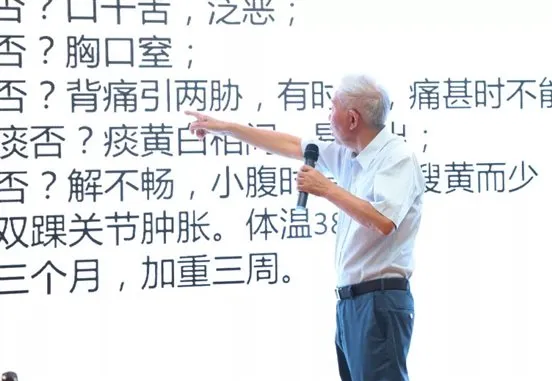 否？口干苦，泛恶；
否？胸口窒；
否？背痛引两胁，有时，痛甚时不能
痰否？痰黄白相间，出；
否？解不畅，小腹时溲黄而少
双踝关节肿胀。体温38
三个月，加重三周。